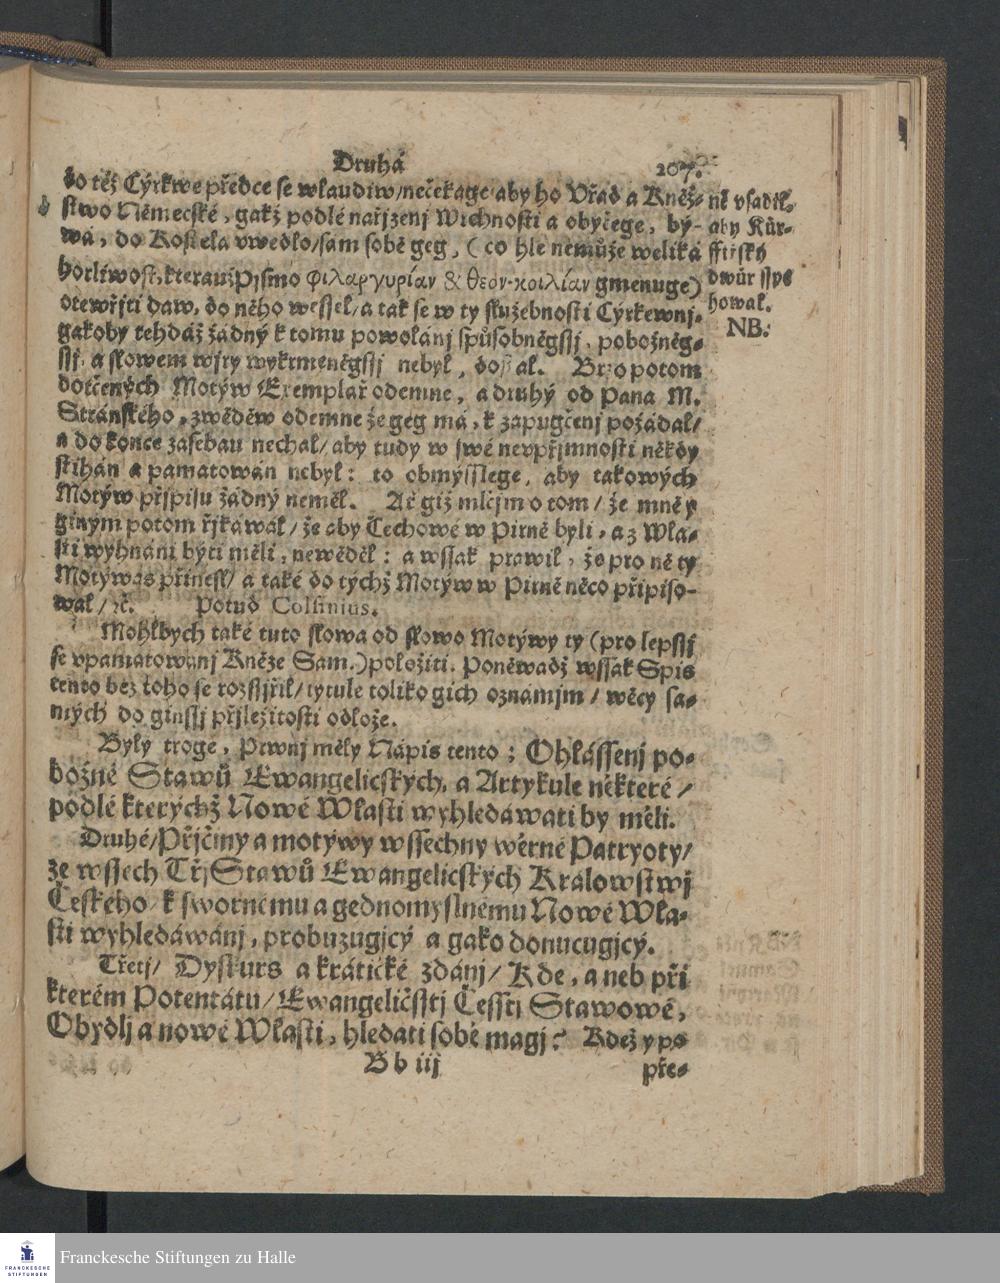 Druhá 207.
do též Cýrkwe předce se wlaudiw/nečekage aby ho Vřad a Kněž-
stwo Německé, gakž podlé nařjzenj Wrchnosti a obyčege, bý-
wá, do Kostela vwedlo/sám sobě geg, (co hle nemůže weliká
horliwost, kterauž Pjsmo φιλαργυρίαν & θεον-κοιλίαν gmenuge)
otewřjti daw, do něho wessel/a tak se w ty služebnosti Cýrkewnj,
gakoby tehdáž žádný k tomu powolánj spůsobněgssj, pobožněg-
ssj, a slowem wjry wykrmeněgssj nebyl, dostal. Brzo potom
dotčených Motýw Exemplař odemne, a druhý od Pana M.
Stránského, zwěděw odemne že geg má, k zapugčenj požádal/
a do konce zasebau nechal/aby tudy w swé nevpřjmnosti někdy
stihán a pamatowán nebyl: to obmýsslege, aby takowých
Motýw přjpisu žádný neměl. Ač giž mlčjm o tom/ že mně y
giným potom řjkáwal/ že aby Čechowé w Pirně byli, a z Wla-
sti wyhnáni býti měli, newěděl: a wssak prawil, že pro ně ty
Motýwas přinesl/ a také do týchž Motýw w Pirně něco připiso-
wal/ꝛč. Potud Colsinius.
Mohlbych také tuto slowa od slowo Motýwy ty (pro lepssj
se vpamatowánj Kněze Sam.) položiti. Poněwadž wssak Spis
tento bez toho se rozssjřil/ tytule toliko gich oznámjm/ wěcy sa-
mých do ginssj přjležitosti odlože.
Byly troge, Prwnj měly Nápis tento; Ohlássenj po-
božné Stawů Ewangelicských, a Artykule některé/
podlé kterýchž Nowé Wlasti wyhledáwati by měli.
Druhé/Přjčiny a motýwy wssechny wěrné Patryoty/
že wssech Třj Stawů Ewangelicských Králowstwj
Českého k swornému a gednomyslnému Nowé Wla-
sti wyhledáwánj, probuzugjcý a gako donucugjcý.
Třetj/ Dyskurs a krátičké zdánj/ Kde, a neb při
kterém Potentátu/ Ewangeličsstj Čessstj Stawowé,
Obydlj a nowé Wlasti, hledati sobě magj? Kdež y po
B b iij pře-
ně vsadil,
aby Kůr-
ffirský
dwůr ssys
howal.
NB.
Franckesche Stiftungen zu Halle
FRANCKESCHE
STIFTUNGEN